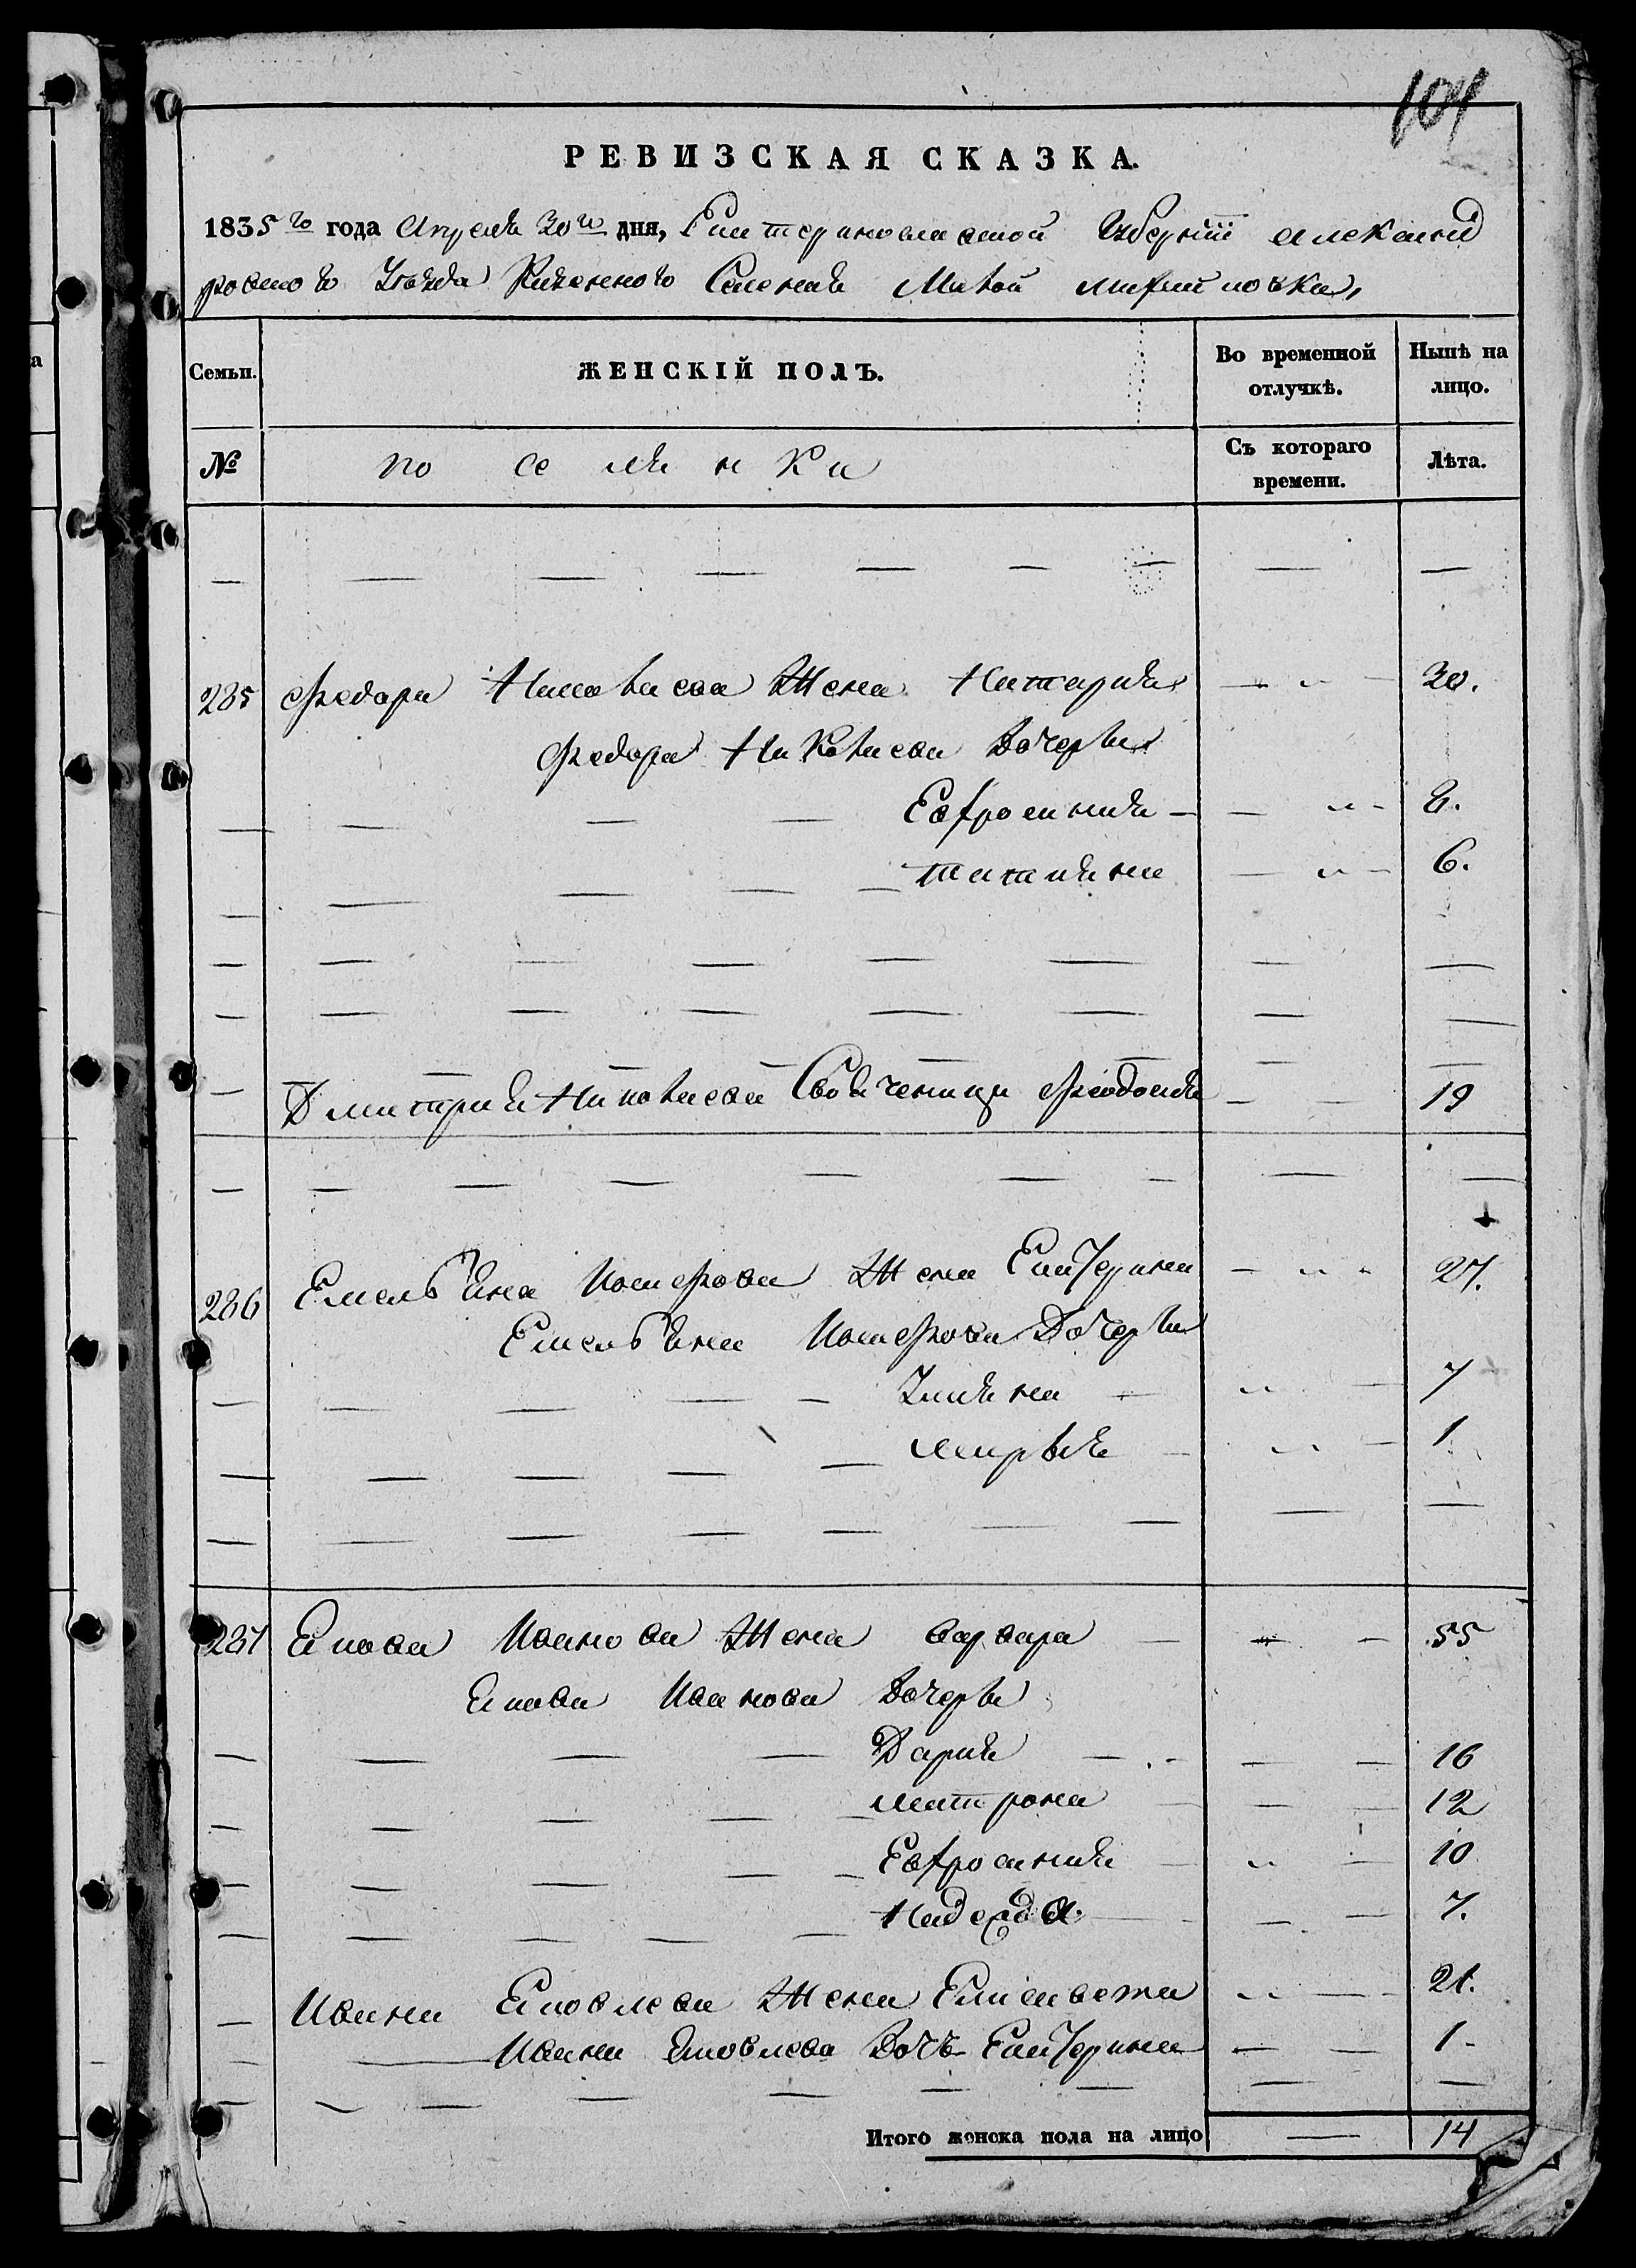 104
РЕВИЗСКАЯ СКАЗКА.
1835 го года Апреля 30 го дня, Екатеринославской Губернии Александ
ровского Уезда Казенного Селения Малой
Семьи. ЖЕНСКІЙ ПОЛЪ. Во временной отлучкѣ. Нынѣ на лицо.
№ поселянки Съ котораго времени. Лѣта.
285 Федора Николаева Жена Наталия 30.
Федора Николаева Дочерьи
Евфросиния 8.
татияна 6.
Дмитрия Николаева Феодосия 19
286 Емельяна Жена Екатерина 27.
Емельяна Дочерьи
Улияна 7
марья 1
287 Якова Иванова Жена варвара 55
Якова Иванова Дочерьи
Дария 16
матрона 12
Евфросиния 10
Надежда 7.
Ивана Яковлева Жена Елисавета 21.
Ивана Яковлева Дочь Екатерина 1
Итого женска пола на лицо 14
а